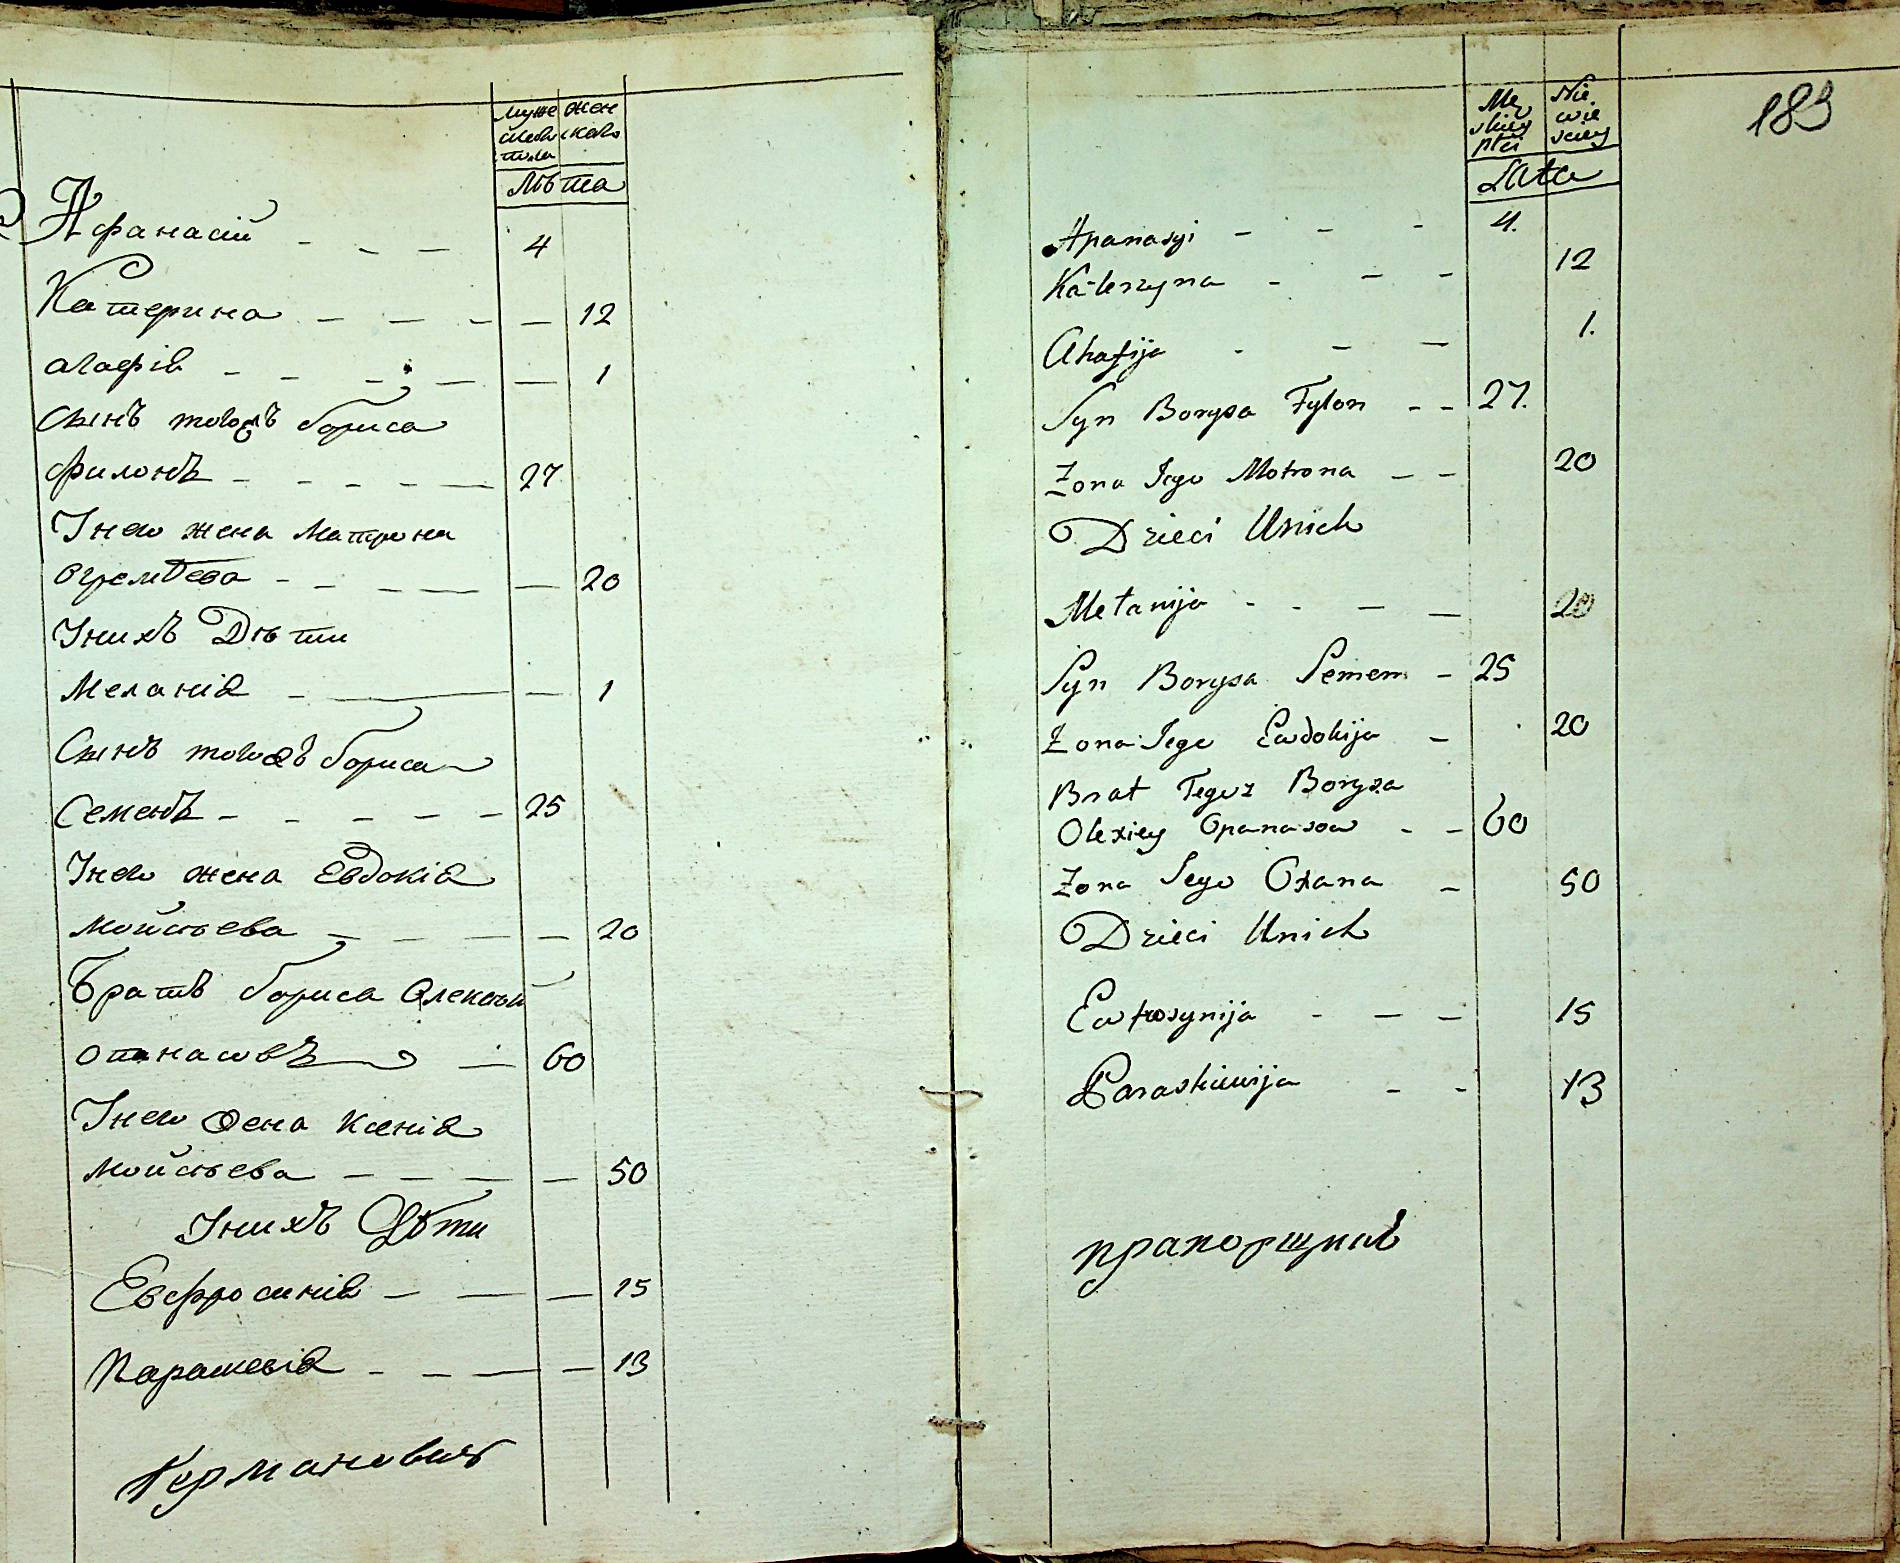 муже жен
скаго скаго
пола
Лѣта
Афанасій - - - 4
Катерина - - - - - 12
агафія - - - - - 1
Сынъ тогожъ бориса
филонъ - - - - - 27
Унего жена Матрона
Охремѣева - - - - - 20
Унихъ Дѣти
Меланія - - - 1
Сынъ тогожъ бориса
Семенъ - - - - - 25
Унего жена Евдокія
Мойсѣева - - - - - 20
Братъ бориса Олексѣй
опанасовъ - 60
Унего жена Ксенія
Мойсѣева - - - - - 50
Унихъ Дѣти
Евфросинія - - - 15
Параскевія - - - - 13
Германовичъ
183
Mę Nie
skiey wie
płci sciey
Lata
Apanasyi - - - 4.
Katerzyna - - - 12
Ahafija - - - 1.
Syn Borysa Fylon - - 27.
Zona Jego Motrona - - 20
Dzieci Unich
Melanija - - - - 20
Syn Borysa Semem - 25
Zona Jego Ewdokija - 20
Brat Tegoz Borysa
Olexiey Opanasow - - 60
Zona Jego Oxana - 50
Dzieci Unich
Ewfrosynija - - - 15
Paraskiewija - - 13
прапорщикъ